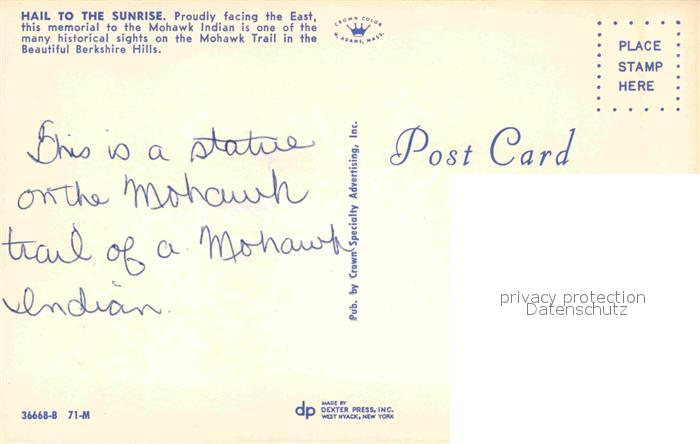 HAIL TO THE SUNRISE. Proudly facing the East,
this memorial to the Mohawk Indian is one of the
many historical sights on the Mohawk Trail in the
Beautiful Berkshire Hills.
CROWN COLOR
N. ADAMS, MASS.
PLACE
STAMP
HERE
Post Card
This is a statue
on the Mohawk
trail of a Mohawk
Indian.
Pub. by Crown Specialty Advertising, Inc.
privacy protection
Datenschutz
36668-B 71-M
dp
MADE BY
DEXTER PRESS, INC.
WEST NYACK, NEW YORK